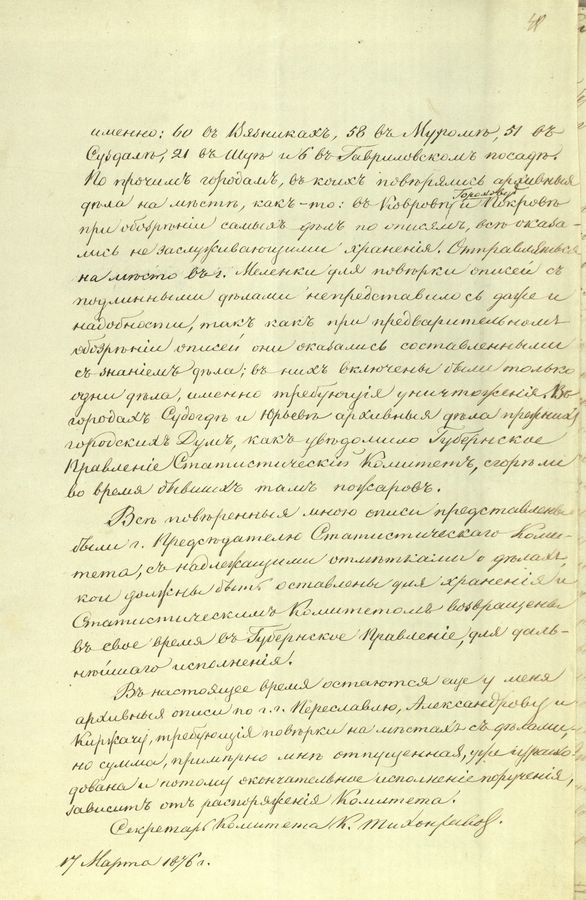 именно: 60 въ Вязникахъ, 58 въ Муромѣ, 51 въ
Суздалѣ, 21 въ Шуѣ и 6 въ Гавриловскомъ посадѣ.
По прочимъ городамъ, въ коихъ повѣрялись архивныя
дѣла на мѣстѣ, какъ-то: въ Ковровѣ, Гороховцѣ и Покровѣ
при обозрѣніи самыхъ дѣлъ по описямъ, всѣ оказа-
лись не заслуживающими храненія. Отправляться
на мѣсто въ г. Меленки для повѣрки описей съ
подлинными дѣлами непредставилось даже и
надобности, такъ какъ при предварительномъ
обозрѣніи описей они оказались составленными
съ знаніемъ дѣла; въ нихъ включены были только
одни дѣла, именно требующія уничтоженія. Въ
городахъ Судогдѣ и Юрьевѣ архивныя дѣла прежнихъ
городскихъ Думъ, какъ увѣдомило Губернское
Правленіе Статистическій Комитетъ, сгорѣли
во время бывшихъ тамъ пожаровъ.
Всѣ повѣренныя мною описи представлены
были г. Предсѣдателю Статистическаго Коми-
тета, съ надлежащими отмѣтками о дѣлахъ,
кои должны быть оставлены для храненія и
Статистическимъ Комитетомъ возвращены
въ свое время въ Губернское Правленіе, для даль-
нѣйшаго исполненія.
Въ настоящее время остаются еще у меня
архивныя описи по г.г. Переславлю, Александрову и
Киржачу, требующія повѣрки на мѣстахъ съ дѣлами,
но сумма, примѣрно мнѣ отпущенная, уже израсхо-
дована и потому окончательное исполненіе порученія,
зависитъ отъ распоряженія Комитета.
Секретарь Комитета К. Тихонравовъ.
17 Марта 1876 г.